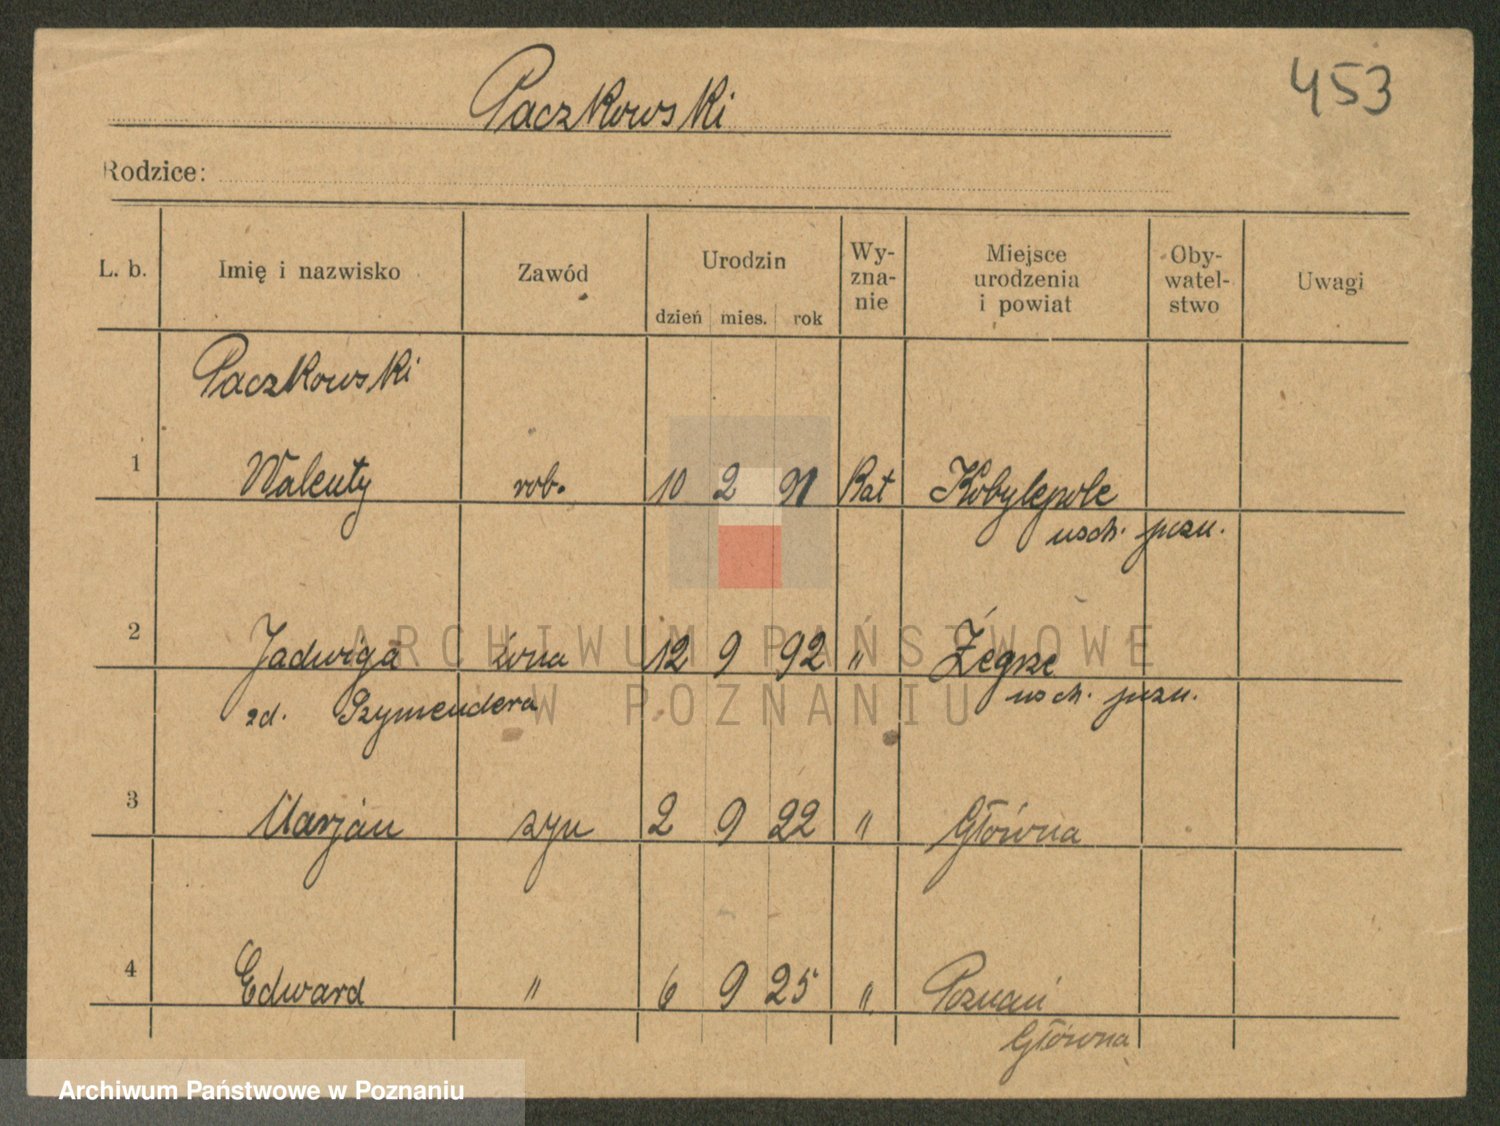 Paczkowski
453
Rodzice:
L. b. Imię i nazwisko Zawód Urodzin dzień mies. rok Wy-zna-nie Miejsce urodzenia i powiat Oby-watel-stwo Uwagi
Paczkowski
1 Walenty rob. 10 2 91 Kat Kobylepole
wsch. pozn.
2 Jadwiga żona 12 9 92 " Żegrze
zd. Szymendera wsch. pozn.
3 Marjan syn 2 9 22 " Główna
4 Edward " 6 9 25 " Poznań
Główna
ARCHIWUM PAŃSTWOWE
W POZNANIU
Archiwum Państwowe w Poznaniu